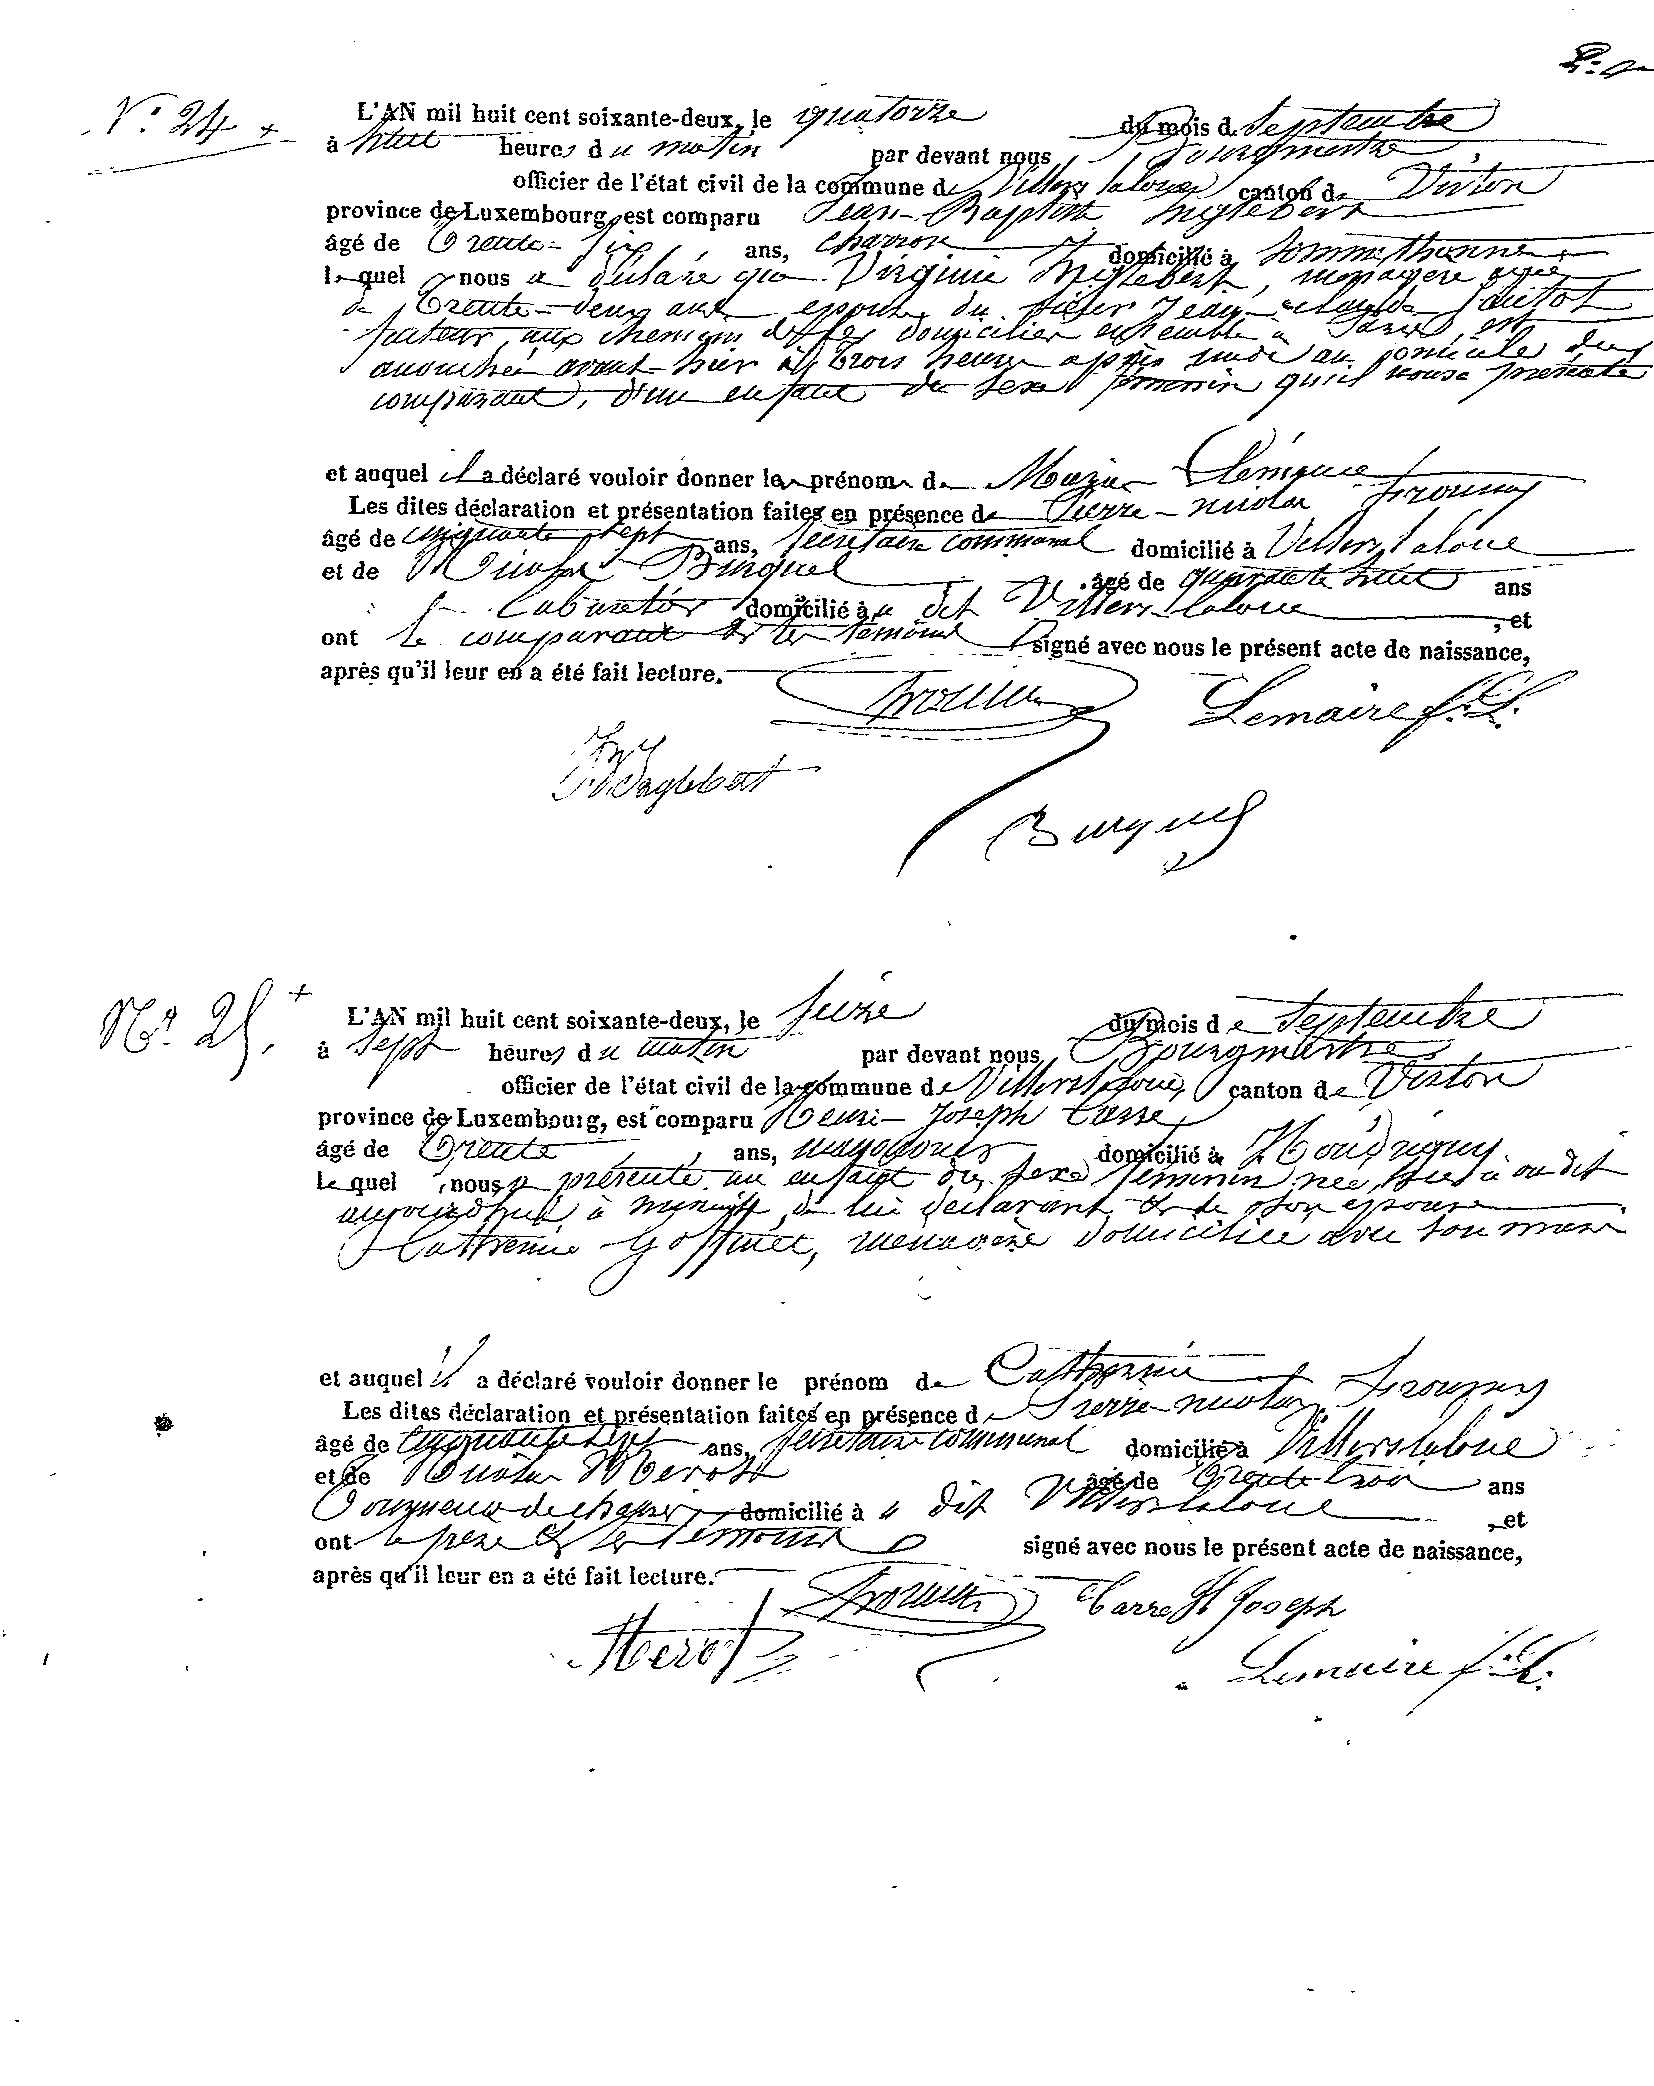 N° 24
L'AN mil huit cent soixante-deux, le quatorze du mois de Septembre
à huit heures du matin par devant nous Bourgmestre
officier de l'état civil de la commune de Villers laloue canton de Virton
province de Luxembourg, est comparu Jean-Baptiste Inglebert
âgé de Trente-Six ans, charron domicilié à Sommethonne
lequel nous a déclaré que Virginie Inglebert, ménagère agée
de Trente-deux ans épouse du sieur Jean
aux chemins de fer domicilier ensemble à Paris, est
accouchée avant-hier à trois heures après midi au domicile du
comparant, d'un enfant du sexe féminin qu'il nous présente
et auquel il a déclaré vouloir donner les prénoms de Maria
Les dites déclaration et présentation faites en présence de Pierre-nicolas
âgé de cinquante sept ans, secrétaire communal domicilié à Villers laloue
et de Nicolas Burquel âgé de quarante huit ans
domicilié à u dit Villers-laloue , et
ont le comparant et les témoins signé avec nous le présent acte de naissance,
après qu'il leur en a été fait lecture.
Lemaire
Inglebert
Burquel
N° 25.
L'AN mil huit cent soixante-deux, le seize du mois de Septembre
à sept heures du matin par devant nous, Bourgmestre
officier de l'état civil de la commune de Villers laloue, canton de Virton
province de Luxembourg, est comparu Henri-Joseph
âgé de Trente ans, domicilié à
lequel nous a présenté un enfant du sexe féminin née au dit
aujourd'hui à minuit, de lui déclarant et de son épouse
Catherine Goffinet, ménagère domiciliée avec son mari
et auquel il a déclaré vouloir donner le prénom de Catherine
Les dites déclaration et présentation faites en présence de Pierre-nicolas
âgé de cinquante sept ans, secrétaire communal domicilié à Villers laloue
et de Nicolas âgé de Trente trois ans
domicilié à u dit Villers laloue , et
ont le père et les témoins signé avec nous le présent acte de naissance,
après qu'il leur en a été fait lecture.
Joseph
Lemaire